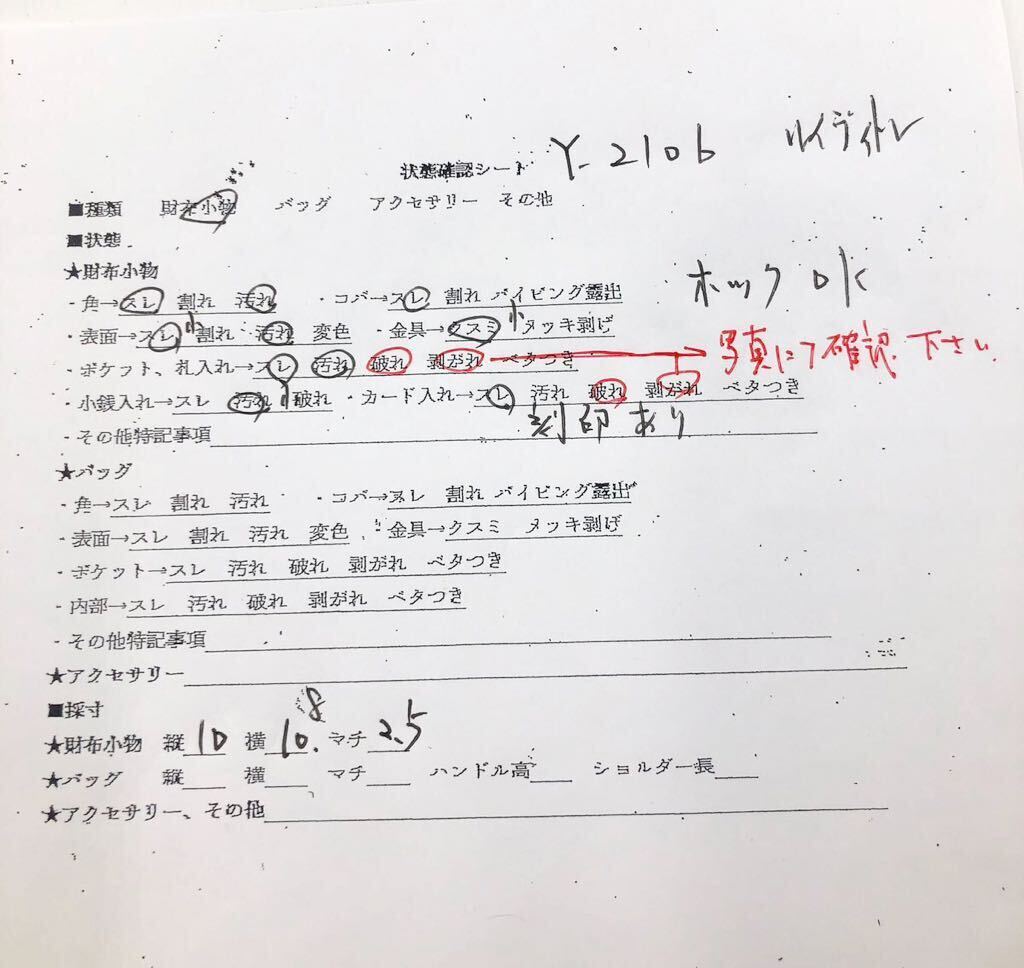 Y-2106 ルイヴィトン
状態確認シート
■種類 財布小物 バッグ アクセサリー その他
■状態
★財布小物
ホック OK
・角→スレ 割れ 汚れ ・コバ→スレ 割れ パイピング露出
・表面→スレ 小 割れ 汚れ 変色 ・金具→クスミ 小 メッキ剥げ
・ポケット、札入れ→スレ 汚れ 破れ 剥がれ ベタつき 写真にて確認下さい
・小銭入れ→スレ 汚れ 小 破れ ・カード入れ→スレ 汚れ 破れ 剥がれ ベタつき
・その他特記事項 刻印あり
★バッグ
・角→スレ 割れ 汚れ ・コバ→スレ 割れ パイピング露出
・表面→スレ 割れ 汚れ 変色 ・金具→クスミ メッキ剥げ
・ポケット→スレ 汚れ 破れ 剥がれ ベタつき
・内部→スレ 汚れ 破れ 剥がれ ベタつき
・その他特記事項
★アクセサリー
■採寸
★財布小物 縦 10 横 10.8 マチ 2.5
★バッグ 縦 横 マチ ハンドル高 ショルダー長
★アクセサリー、その他